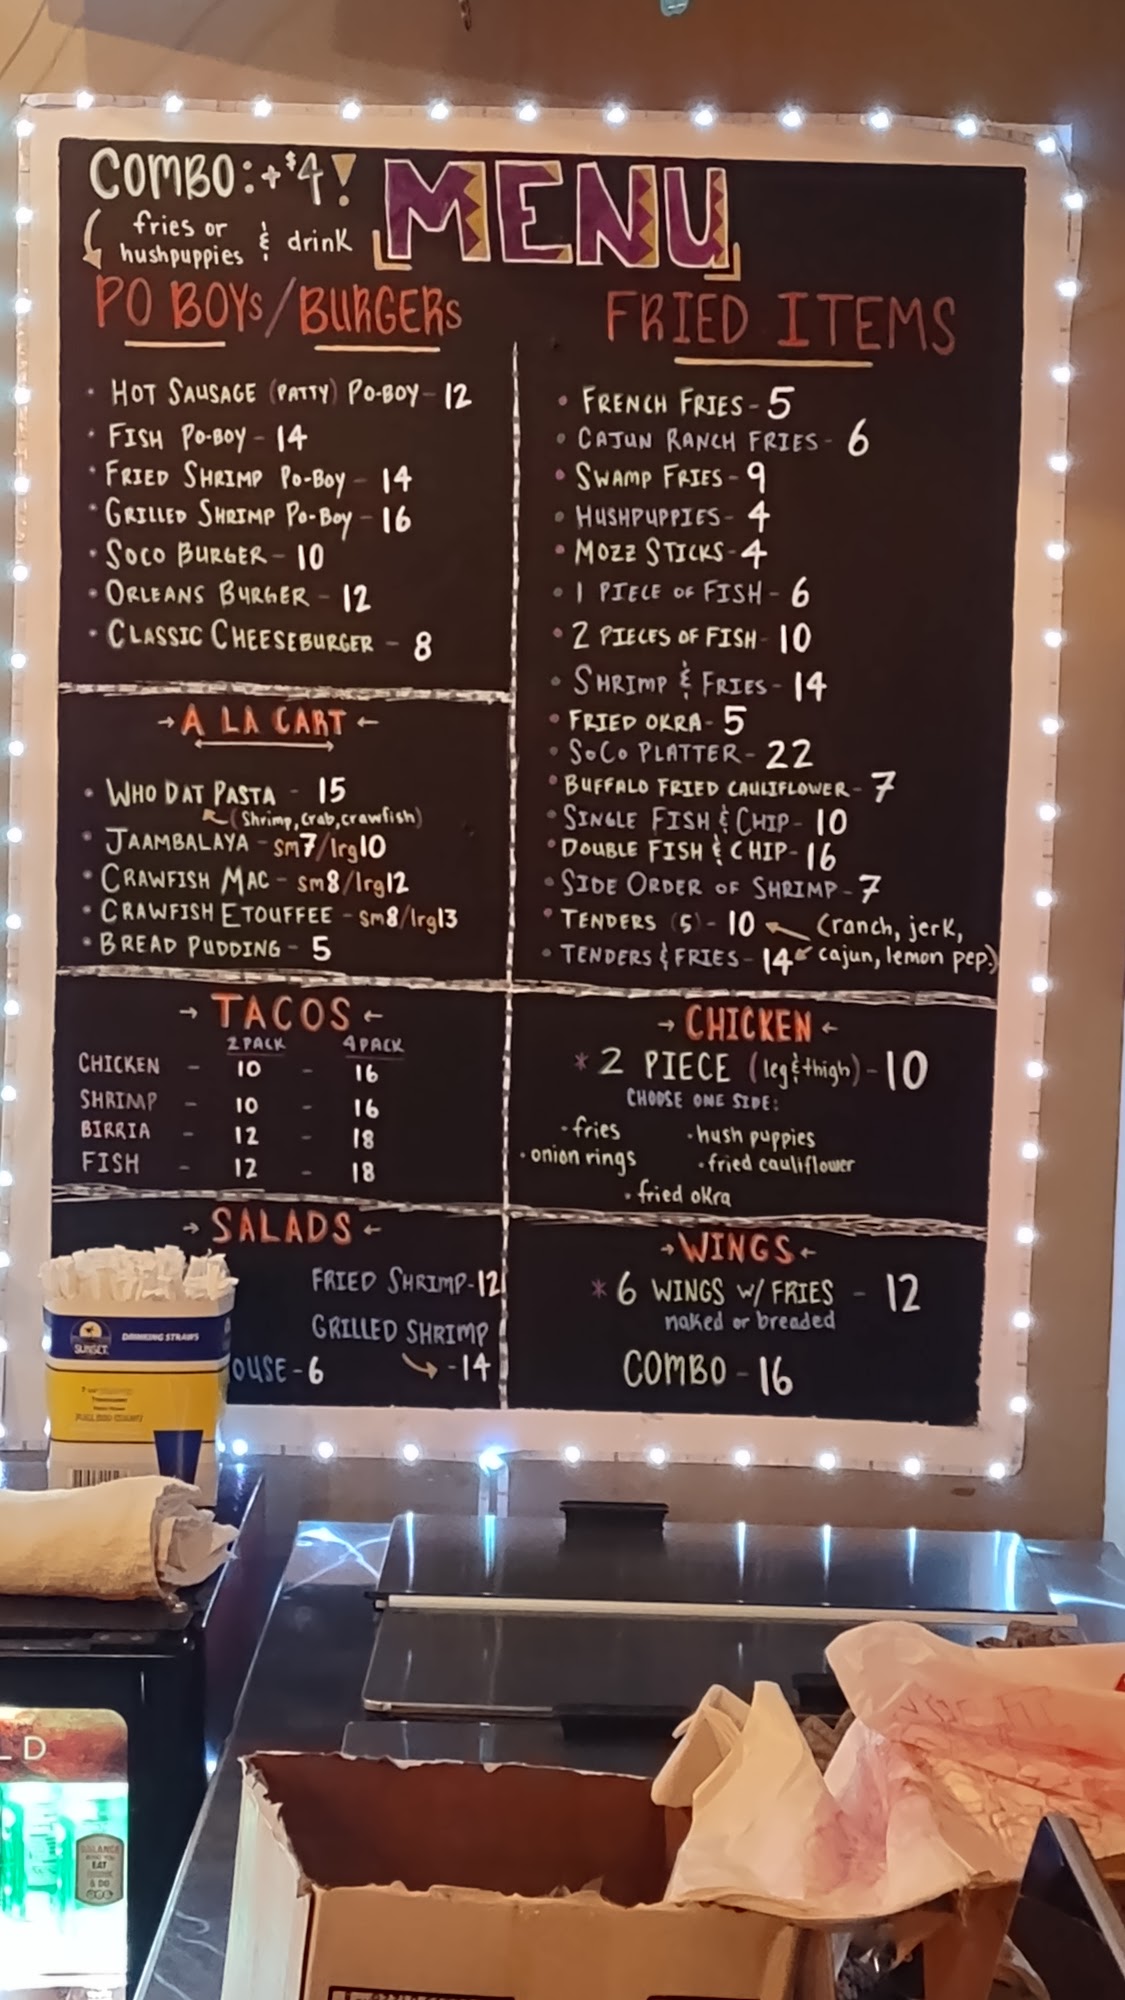 COMBO:+$4!
fries or
hushpuppies & drink
MENU
PO BOYs/BURGERs
• HOT SAUSAGE (PATTY) PO-BOY - 12
• FISH PO-BOY - 14
• FRIED SHRIMP PO-BOY - 14
• GRILLED SHRIMP PO-BOY - 16
• SOCO BURGER - 10
• ORLEANS BURGER - 12
• CLASSIC CHEESEBURGER - 8
→ A LA CART ←
• WHO DAT PASTA - 15
(Shrimp, crab, crawfish)
• JAAMBALAYA - sm7/lrg10
• CRAWFISH MAC - sm8/lrg12
• CRAWFISH ETOUFFEE - sm8/lrg13
• BREAD PUDDING - 5
→ TACOS ←
2 PACK 4 PACK
CHICKEN - 10 - 16
SHRIMP - 10 - 16
BIRRIA - 12 - 18
FISH - 12 - 18
→ SALADS ←
FRIED SHRIMP-12
GRILLED SHRIMP
→ -14
OUSE-6
FRIED ITEMS
• FRENCH FRIES - 5
• CAJUN RANCH FRIES - 6
• SWAMP FRIES - 9
• HUSHPUPPIES - 4
• MOZZ STICKS - 4
• 1 PIECE OF FISH - 6
• 2 PIECES OF FISH - 10
• SHRIMP & FRIES - 14
• FRIED OKRA - 5
• SoCo PLATTER - 22
• BUFFALO FRIED CAULIFLOWER - 7
• SINGLE FISH & CHIP - 10
• DOUBLE FISH & CHIP - 16
• SIDE ORDER OF SHRIMP - 7
• TENDERS (5) - 10 ← (ranch, jerk,
• TENDERS & FRIES - 14 cajun, lemon pep.)
→ CHICKEN ←
* 2 PIECE (leg & thigh) - 10
CHOOSE ONE SIDE:
• fries • hush puppies
• onion rings • fried cauliflower
• fried okra
→ WINGS ←
* 6 WINGS W/ FRIES - 12
naked or breaded
COMBO - 16
SUNSET
DRINKING STRAWS
LD
BALANCE
EAT
& DO